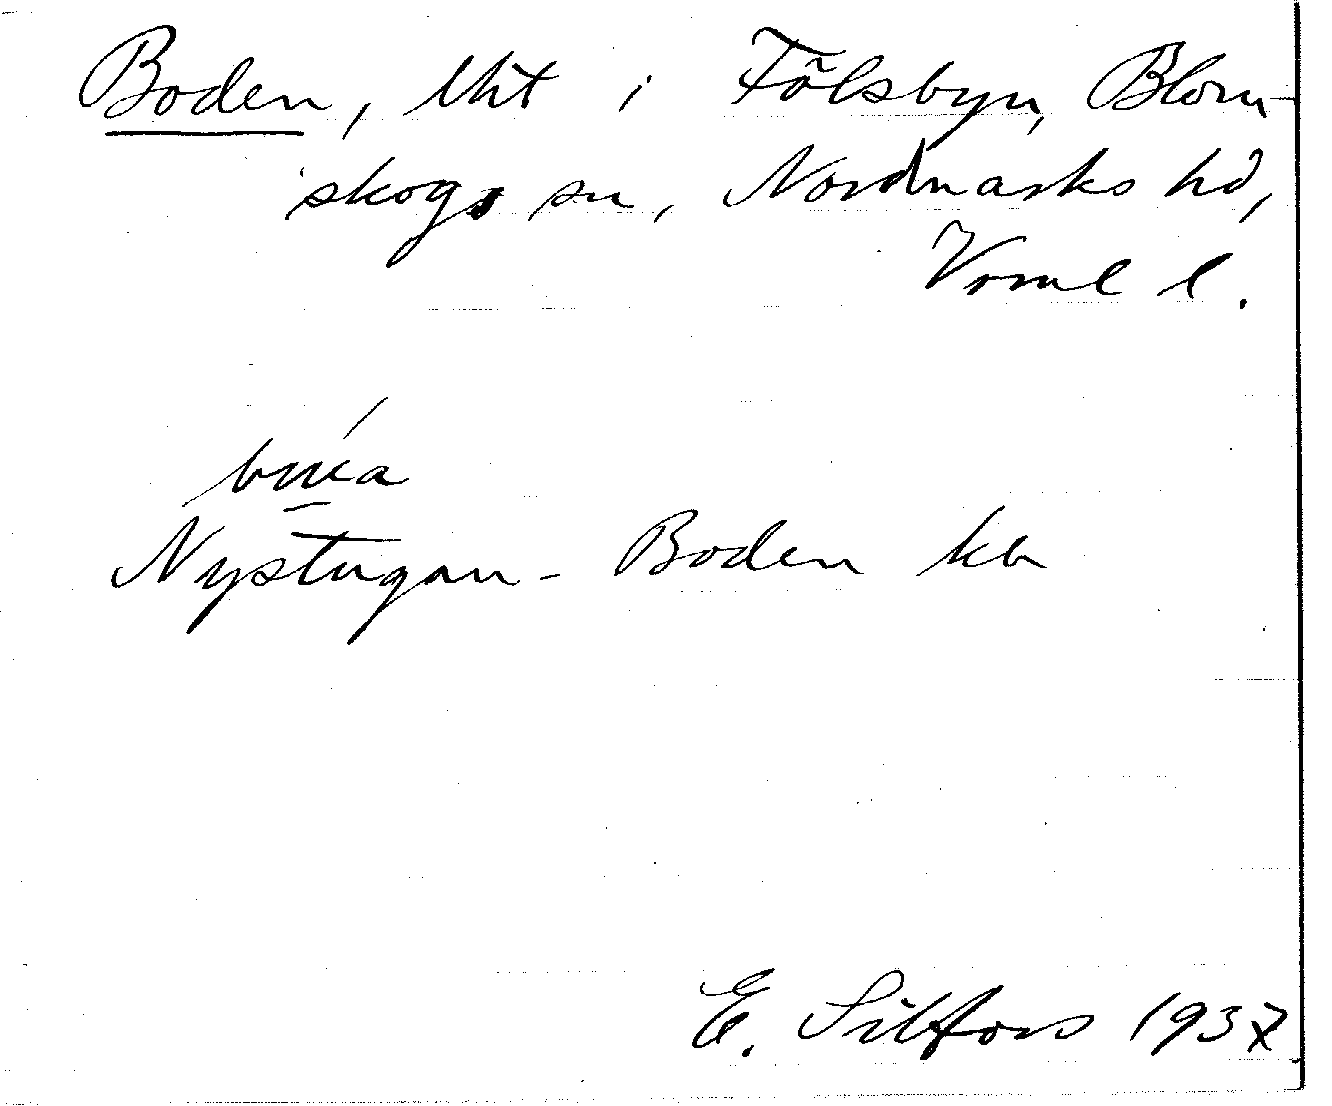 Boden, lht i Fölsbyn, Blom-
skogs sn, Nordmarks hd,
Vrml l.
Nystugan- Boden kb
E. Silfors 1937